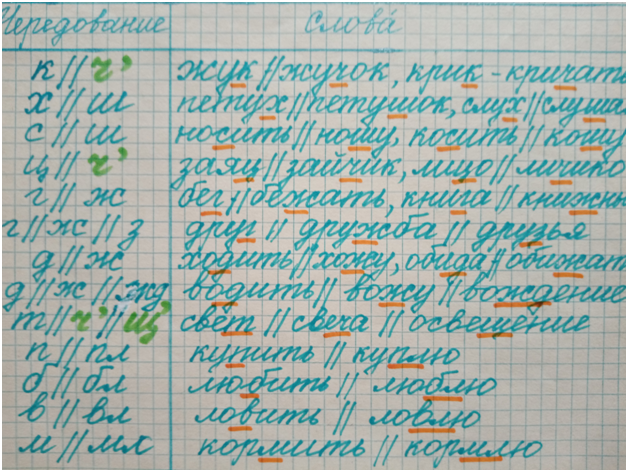 Чередование слова́
к // ч’ жук // жучок, крик - кричать
х // ш петух // петушок, слух // слуша
с // ш носить // ношу, косить // кошу
ц // ч’ заяц // зайчик, лицо // личико
г // ж бег // бежать, книга // книжн
г // ж // з друг // дружба // друзья
д // ж ходить // хожу, обида // обижат
д // ж // жд водить // вожу // вождение
т // ч’ // щ’ свет // свеча // освещение
п // пл купить // куплю
б // бл любить // люблю
в // вл ловить // ловлю
м // мл кормить // кормлю